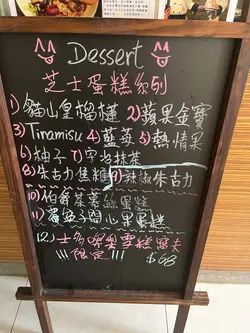 Dessert
芝士蛋糕系列
1) 貓山皇榴槤 2) 蘋果金寶
3) Tinamisu 4) 藍莓 5) 熱情果
6) 柚子 7) 宇治抹茶
8) 朱古力焦糖 9) 辣椒朱古力
10) 伯爵茶慕絲蛋糕
11) 開心果蛋糕
12) 士多啤梨雪糕窩夫
!!! 限定 !!! $68